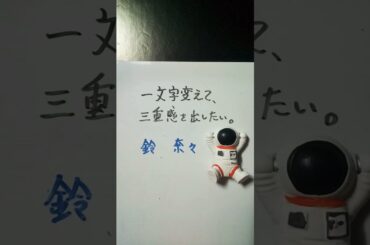 一文字変えて、
三重感を出したい。
鈴 奈々
鈴